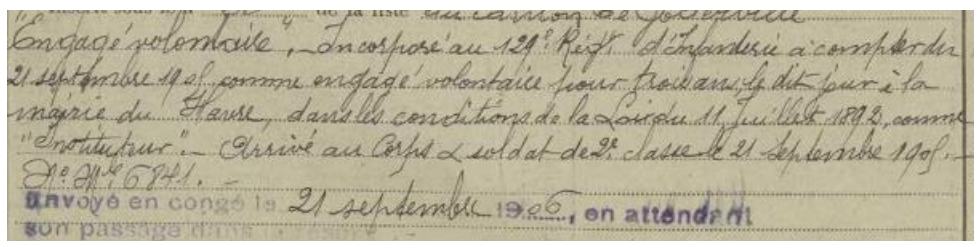 de la liste du canton de Goderville
"Engagé volontaire". Incorporé au 129e Régt. d'Infanterie à compter du
21 septembre 1905, comme engagé volontaire pour trois ans, le dit jour à la
mairie du Havre, dans les conditions de la Loi du 11 Juillet 1892, comme
"Instituteur". – Arrivé au Corps & soldat de 2e classe le 21 Septembre 1905. –
No Mle 6841. –
Envoyé en congé le 21 septembre 1906, en attendant
son passage dans la réserve